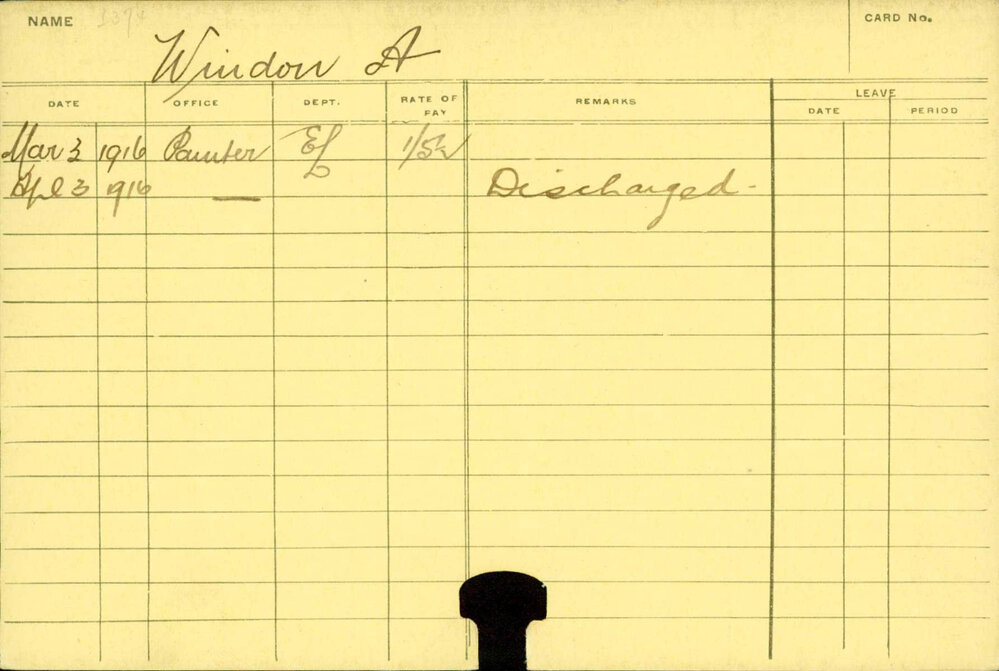 NAME 1374 CARD No.
Windon A
DATE OFFICE DEPT. RATE OF PAY REMARKS LEAVE
DATE PERIOD
Mar 3 1916 Painter EL 1/5½
Apl 3 1916 — Discharged -